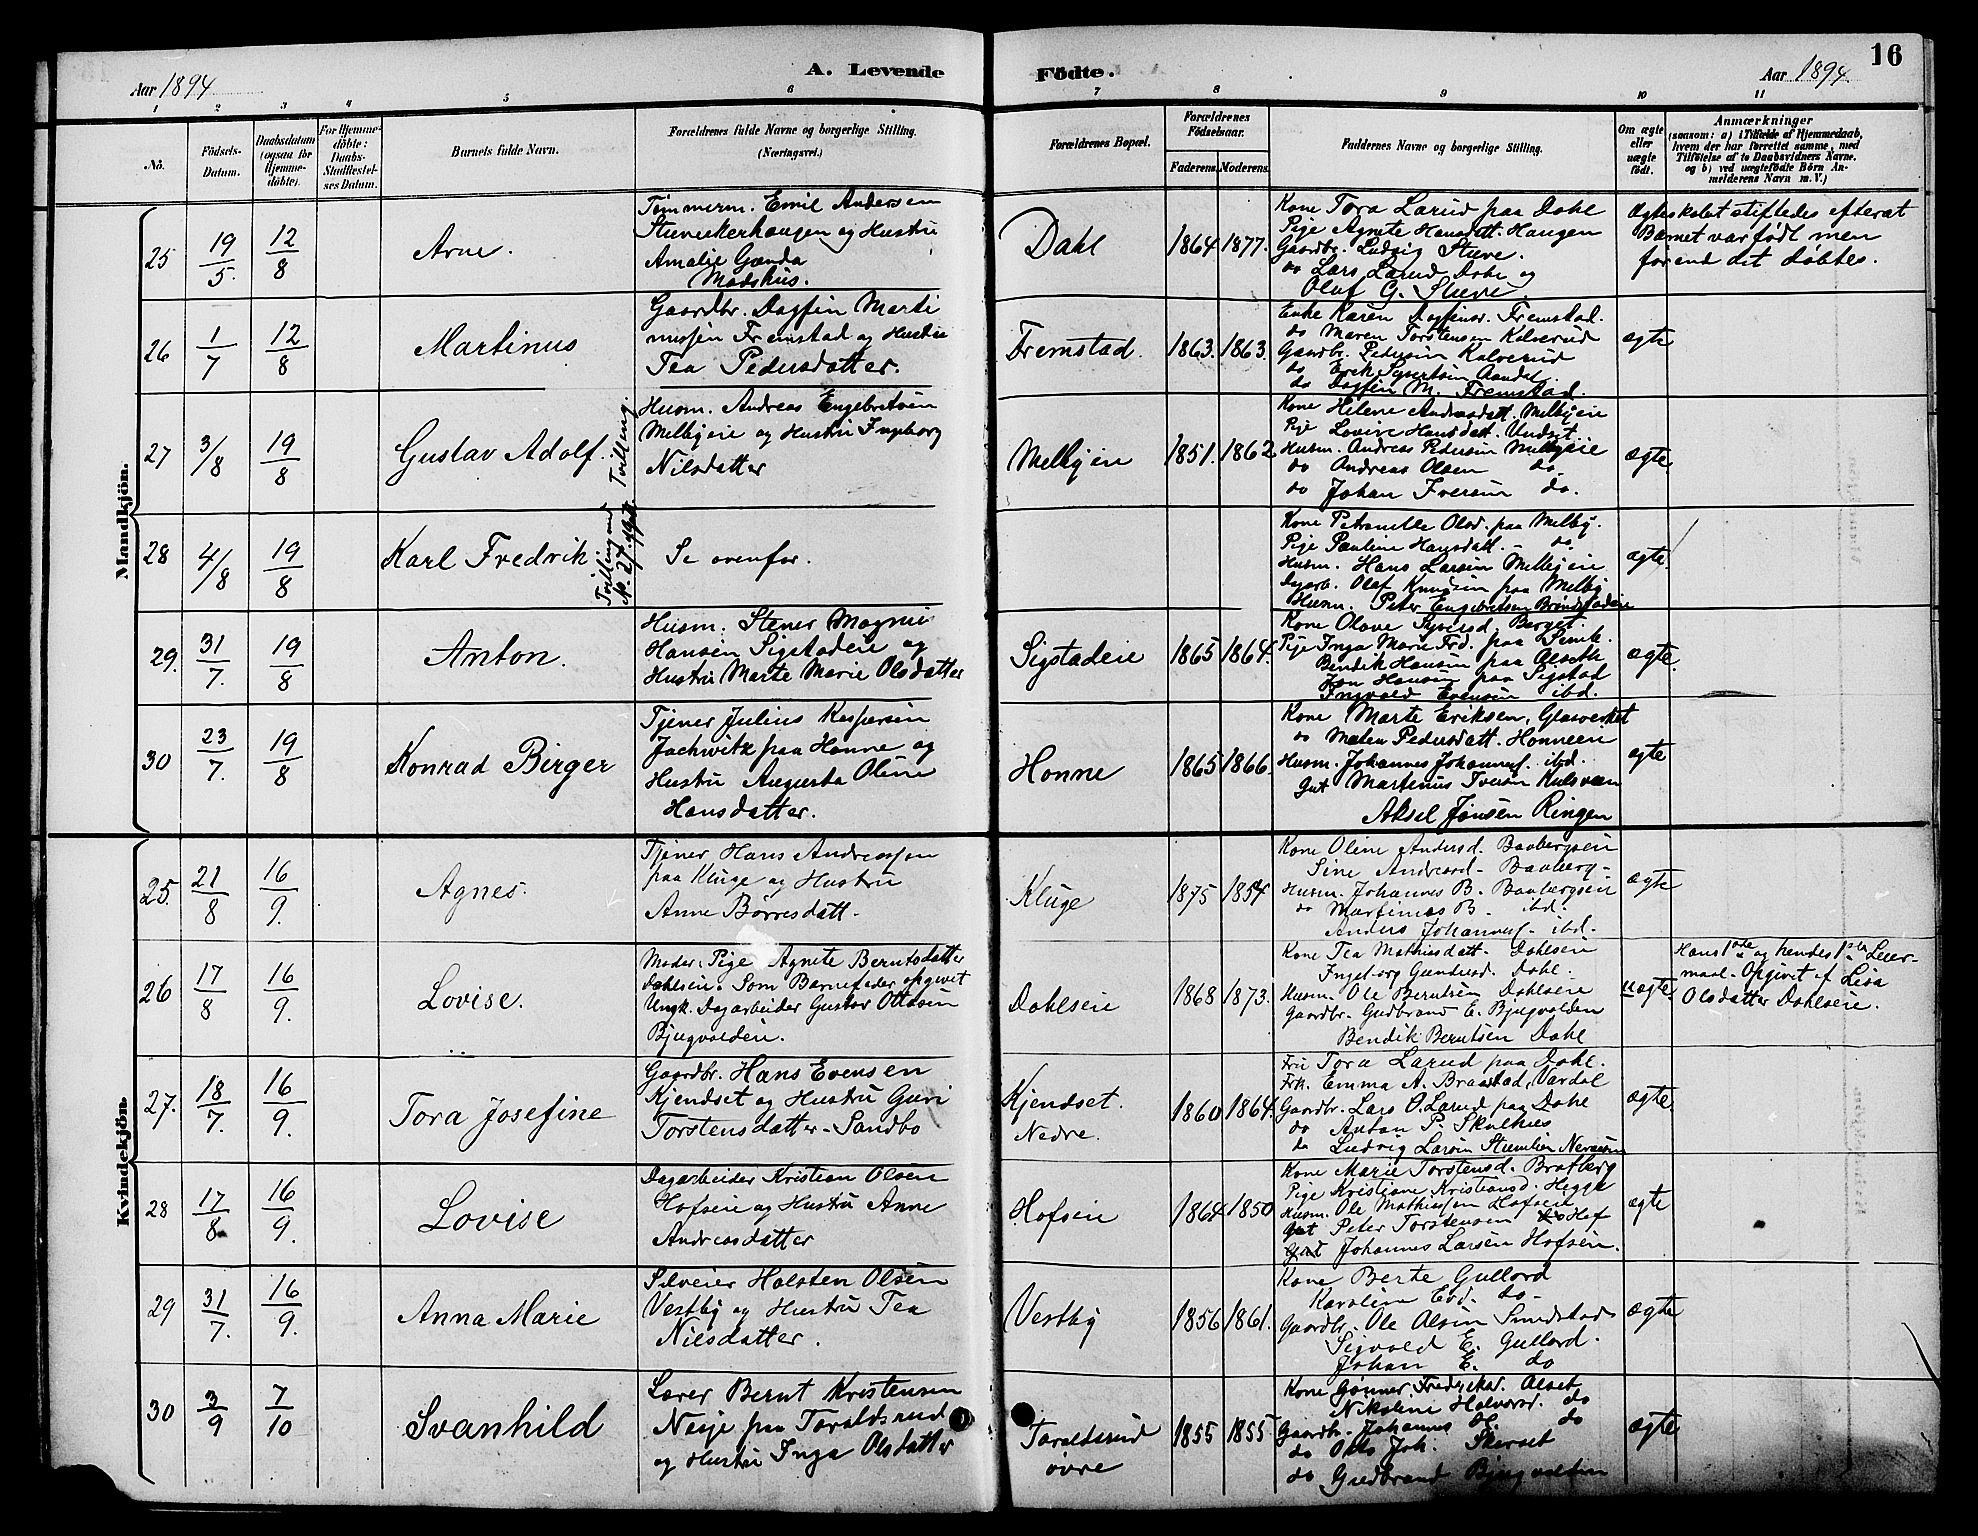 Aar 1894
A. Levende
Fødte.
Aar 1894.
16
1 2 3 4 5 6 7 8 9 10 11
No.
Fødsels-
Datum.
Daabsdatum
(ogsaa for
Hjemme-
døbte).
For Hjemme-
døbte:
Daabs-
Stadfæstel-
ses Datum.
Barnets fulde Navn.
Forældrenes fulde Navne og borgerlige Stilling.
(Næringsvei.)
Forældrenes Bopæl.
Forældrenes
Fødselsaar.
Faderens.
Moderens.
Faddernes Navne og borgerlige Stilling.
Om ægte
eller
uægte
født.
Anmærkninger
(saasom: a) i Tilfælde af Hjemmedaab,
hvem der har forrettet samme, med
Tilføielse af to Daabsvidners Navne.
og b) ved uægtefødte Børn An-
melderens Navn m. V.)
Mandkjön.
25
19/5.
12/8
Arne.
Tømmerm. Emil Andersen
Stuvickerhaugen og Hustru
Amalie Gunda
Madshus.
Dahl
1864
1877.
Kone Tora Larud paa Dahl
Pige Agnete Hansdatt. Haugen
Gaardbr. Ludvig Stuve.
do Lars Larud Dahl og
Olaf G. Stuve.
Ægteskabet stiftedes efterat
Barnet var født men
førend det døbtes.
26
1/7
12/8
Martinus
Gaardbr. Dagfin Marti
nussen Fremstad og Hustru
Tea Pedersdatter.
Fremstad.
1863.
1863.
Enke Karen Dagfinsd. Fremstad.
do Maren Torstensen Kalverud
Gaardbr. Pedersen Kalverud
do Erik Syvertsen Aandal
do Dagfin M. Fremstad.
ægte
27
3/8
19/8
Gustav Adolf.
Tvilling.
Husm. Andreas Engebretsen
Melbyeie og Hustru Ingeborg
Nilsdatter
Melbyeie
1851.
1862
Kone Helene Andersdatt. Melbyeie
Pige Lovise Hansdatt. Undset.
Husm. Andreas Pedersen Melbyeie
do Andreas Olsen do
do Johan Iversen do.
ægte.
28
4/8
19/8
Karl Fredrik
Tvilling med
No. 27.
Se ovenfor.
Kone Petronelle Olsd. paa Melby.
Pige Pauline Hansdatt. - do.
Husm. Hans Larsen Melbyeie
Dagarb. Olaf Knudsen paa Melby
Husm. Peter Engebretsen Brøndstadeie
ægte.
29.
31/7.
19/8
Anton.
Husm. Stener Magnus
Hansen Sigstadeie og
Hustru Marte Marie Olsdatter
Sigstadeie
1865
1864.
Kone Olave Syversd. Berget.
Pige Inga Marie Frd. paa Simk.
Bendik Hansen paa Alseth
Jon Hansen paa Sigstad
Ingvald Evensen ibd.
ægte.
30
23/7.
19/8
Konrad Birger
Tjener Julius Kaspersen
Jachwitz paa Honne og
Hustru Augusta Oline
Hansdatter.
Honne
1865
1866.
Kone Marte Eriksen, Glasverket
do Maten Pedersdatt. Honneen
Husm. Johannes Johannes. ibd.
Gut Martinus Iversen Kulsveen
Aksel Jonsen Ringen
ægte
Kvindekjön.
25.
21/8
16/9.
Agnes.
Tjener Hans Andreassen
paa Kluge og Hustru
Anne Børresdatt.
Kluge
1875
1854
Kone Oline Andersd. Baabergseie
Sine Andreasd. Baaberg-
Husm. Johannes B. Baabergseie
do Martinus B. ibd.
Anders Johannes. ibd.
ægte
26
17/8
16/9.
Lovise.
Moder: Pige Agnete Berntsdatter
Dahlseie. Som Barnefader opgivet
Ungk. Dagarbeider Gustav Ottosen
Bjugvoldeie.
Dahlseie
1868
1873.
Kone Tea Mathiasdatt. Dahlseie
Ingeborg Gundersd. Dahl.
Husm. Ole Berntsen Dahlseie
Gaardbr. Gudbrand E. Bjugvolden
Bendik Berntsen Dahl
uægte.
Hans 1ste og hendes 1ste Leier-
maal. Opgivet af Lisa
Olsdatter Dahlseie.
27.
18/7.
16/9.
Tora Josefine
Gaardbr. Hans Evensen
Kjendset og Hustru Guri
Torstensdatter. Sandbo
Kjendset.
Nedre.
1860
1864.
Fru Tora Larud paa Dahl.
Frk. Emma A. Braastad, Vardal
Gaardbr. Lars O. Larud paa Dahl
do Anton P. Skulhus
do Ludvig Larsen
ægte.
28
17/8
16/9.
Lovise
Dagarbeider Kristian Olsen
Hofseie og Hustru Anne
Andreasdatter
Hofseie
1864
1850
Kone Marie Torstensd. Bratberg
Pige Kristiane Kristiansd. Hegge
Husm. Ole Mathiassen Hofseie
Gut Peter Torstensen Hof
Gut Johannes Larsen Hofseie.
ægte
29
31/7.
16/9.
Anna Marie
Selveier Halsten Olsen
Vestby og Hustru Tea
Nilsdatter.
Vestby
1856
1861.
Kone Berte Gullord
Karoline Evd. do.
Gaardbr. Ole Olsen Smedstad
Sigvald E. Gullord.
Johan E. do
ægte
30
3/9
7/10
Svanhild
Lærer Bernt Kristensen
Næsje paa Taraldsrud
og Hustru Inga Olsdatter
Taraldsrud
øvre
1855
1855
Kone Gønner Fredriksd. Alset
Nikoline Halvorsd. do
Gaardbr. Johannes H. do
do Otto Joh. Skarset
do Gudbrand Bjugvolden
ægte